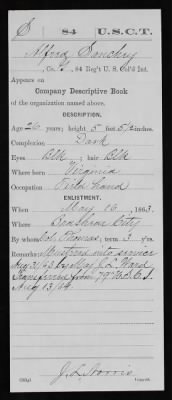 S 84 U.S.C.T.
Alfred
, Co. , 84 Reg't U. S. Col'd Inf.
Appears on
Company Descriptive Book
of the organization named above.
DESCRIPTION.
Age 26 years; height 5 feet 5 inches.
Complexion Dark
Eyes Blk ; hair Blk
Where born Virginia
Occupation Field hand
ENLISTMENT.
When May 16, 1863.
Where Brashear City
By whom Col. Thomas; term 3 y'rs.
Remarks: Mustered into service
Aug 31/63 by Maj. C. L. Ward
Transferred from 79" U.S.C.T.
Aug 13/64.
J. L. Norris
Copyist.